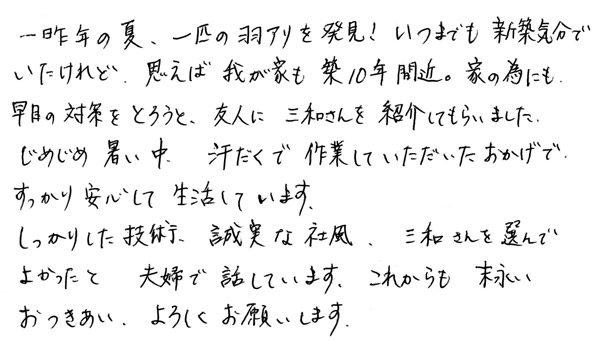 一昨年の夏、一匹の羽アリを発見！いつまでも新築気分で
いたけれど、思えば我が家も築10年間近。家の為にも、
早目の対策をとろうと、友人に三和さんを紹介してもらいました。
じめじめ暑い中、汗だくで作業していただいたおかげで、
すっかり安心して生活しています。
しっかりした技術、誠実な社風、三和さんを選んで
よかったと夫婦で話しています。これからも末永い
おつきあい、よろしくお願いします。